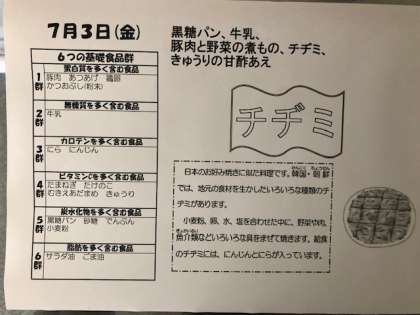 7月3日(金)
6つの基礎食品群
1群
蛋白質を多く含む食品
豚肉 あつあげ 鶏卵
かつおぶし(粉末)
2群
無機質を多く含む食品
牛乳
3群
カロテンを多く含む食品
にら にんじん
4群
ビタミンCを多く含む食品
たまねぎ たけのこ
むきえだまめ きゅうり
5群
炭水化物を多く含む食品
黒糖パン 砂糖 でんぷん
小麦粉
6群
脂肪を多く含む食品
サラダ油 ごま油
黒糖パン、牛乳、
豚肉と野菜の煮もの、チヂミ、
きゅうりの甘酢あえ
チヂミ
日本のお好み焼きに似た料理です。韓国・朝鮮
では、地元の食材を生かしたいろいろな種類のチ
ヂミがあります。
小麦粉、卵、水、塩を合わせた中に、野菜や肉、
魚介類などいろいろな具をまぜて焼きます。給食
のチヂミには、にんじんとにらが入っています。